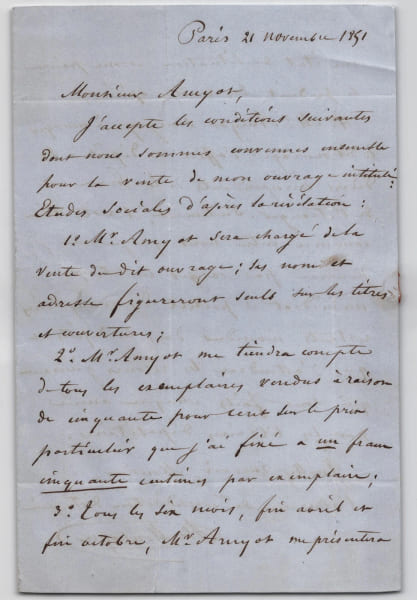 Paris 21 novembre 1851
Monsieur Amyot,
J'accepte les conditions suivantes
dont nous sommes convenus ensemble
pour la vente de mon ouvrage intitulé:
Etudes sociales d'après la révélation:
1º. Mr. Amyot sera chargé de la
vente du dit ouvrage; ses nom et
adresse figureront seuls sur les titres
et couvertures;
2º. Mr. Amyot me tiendra compte
de tous les exemplaires vendus à raison
de cinquante pour cent sur le prix
particulier que j'ai fixé à un franc
cinquante centimes par exemplaire;
3º. Tous les six mois, fin avril et
fin octobre, Mr. Amyot me présentera